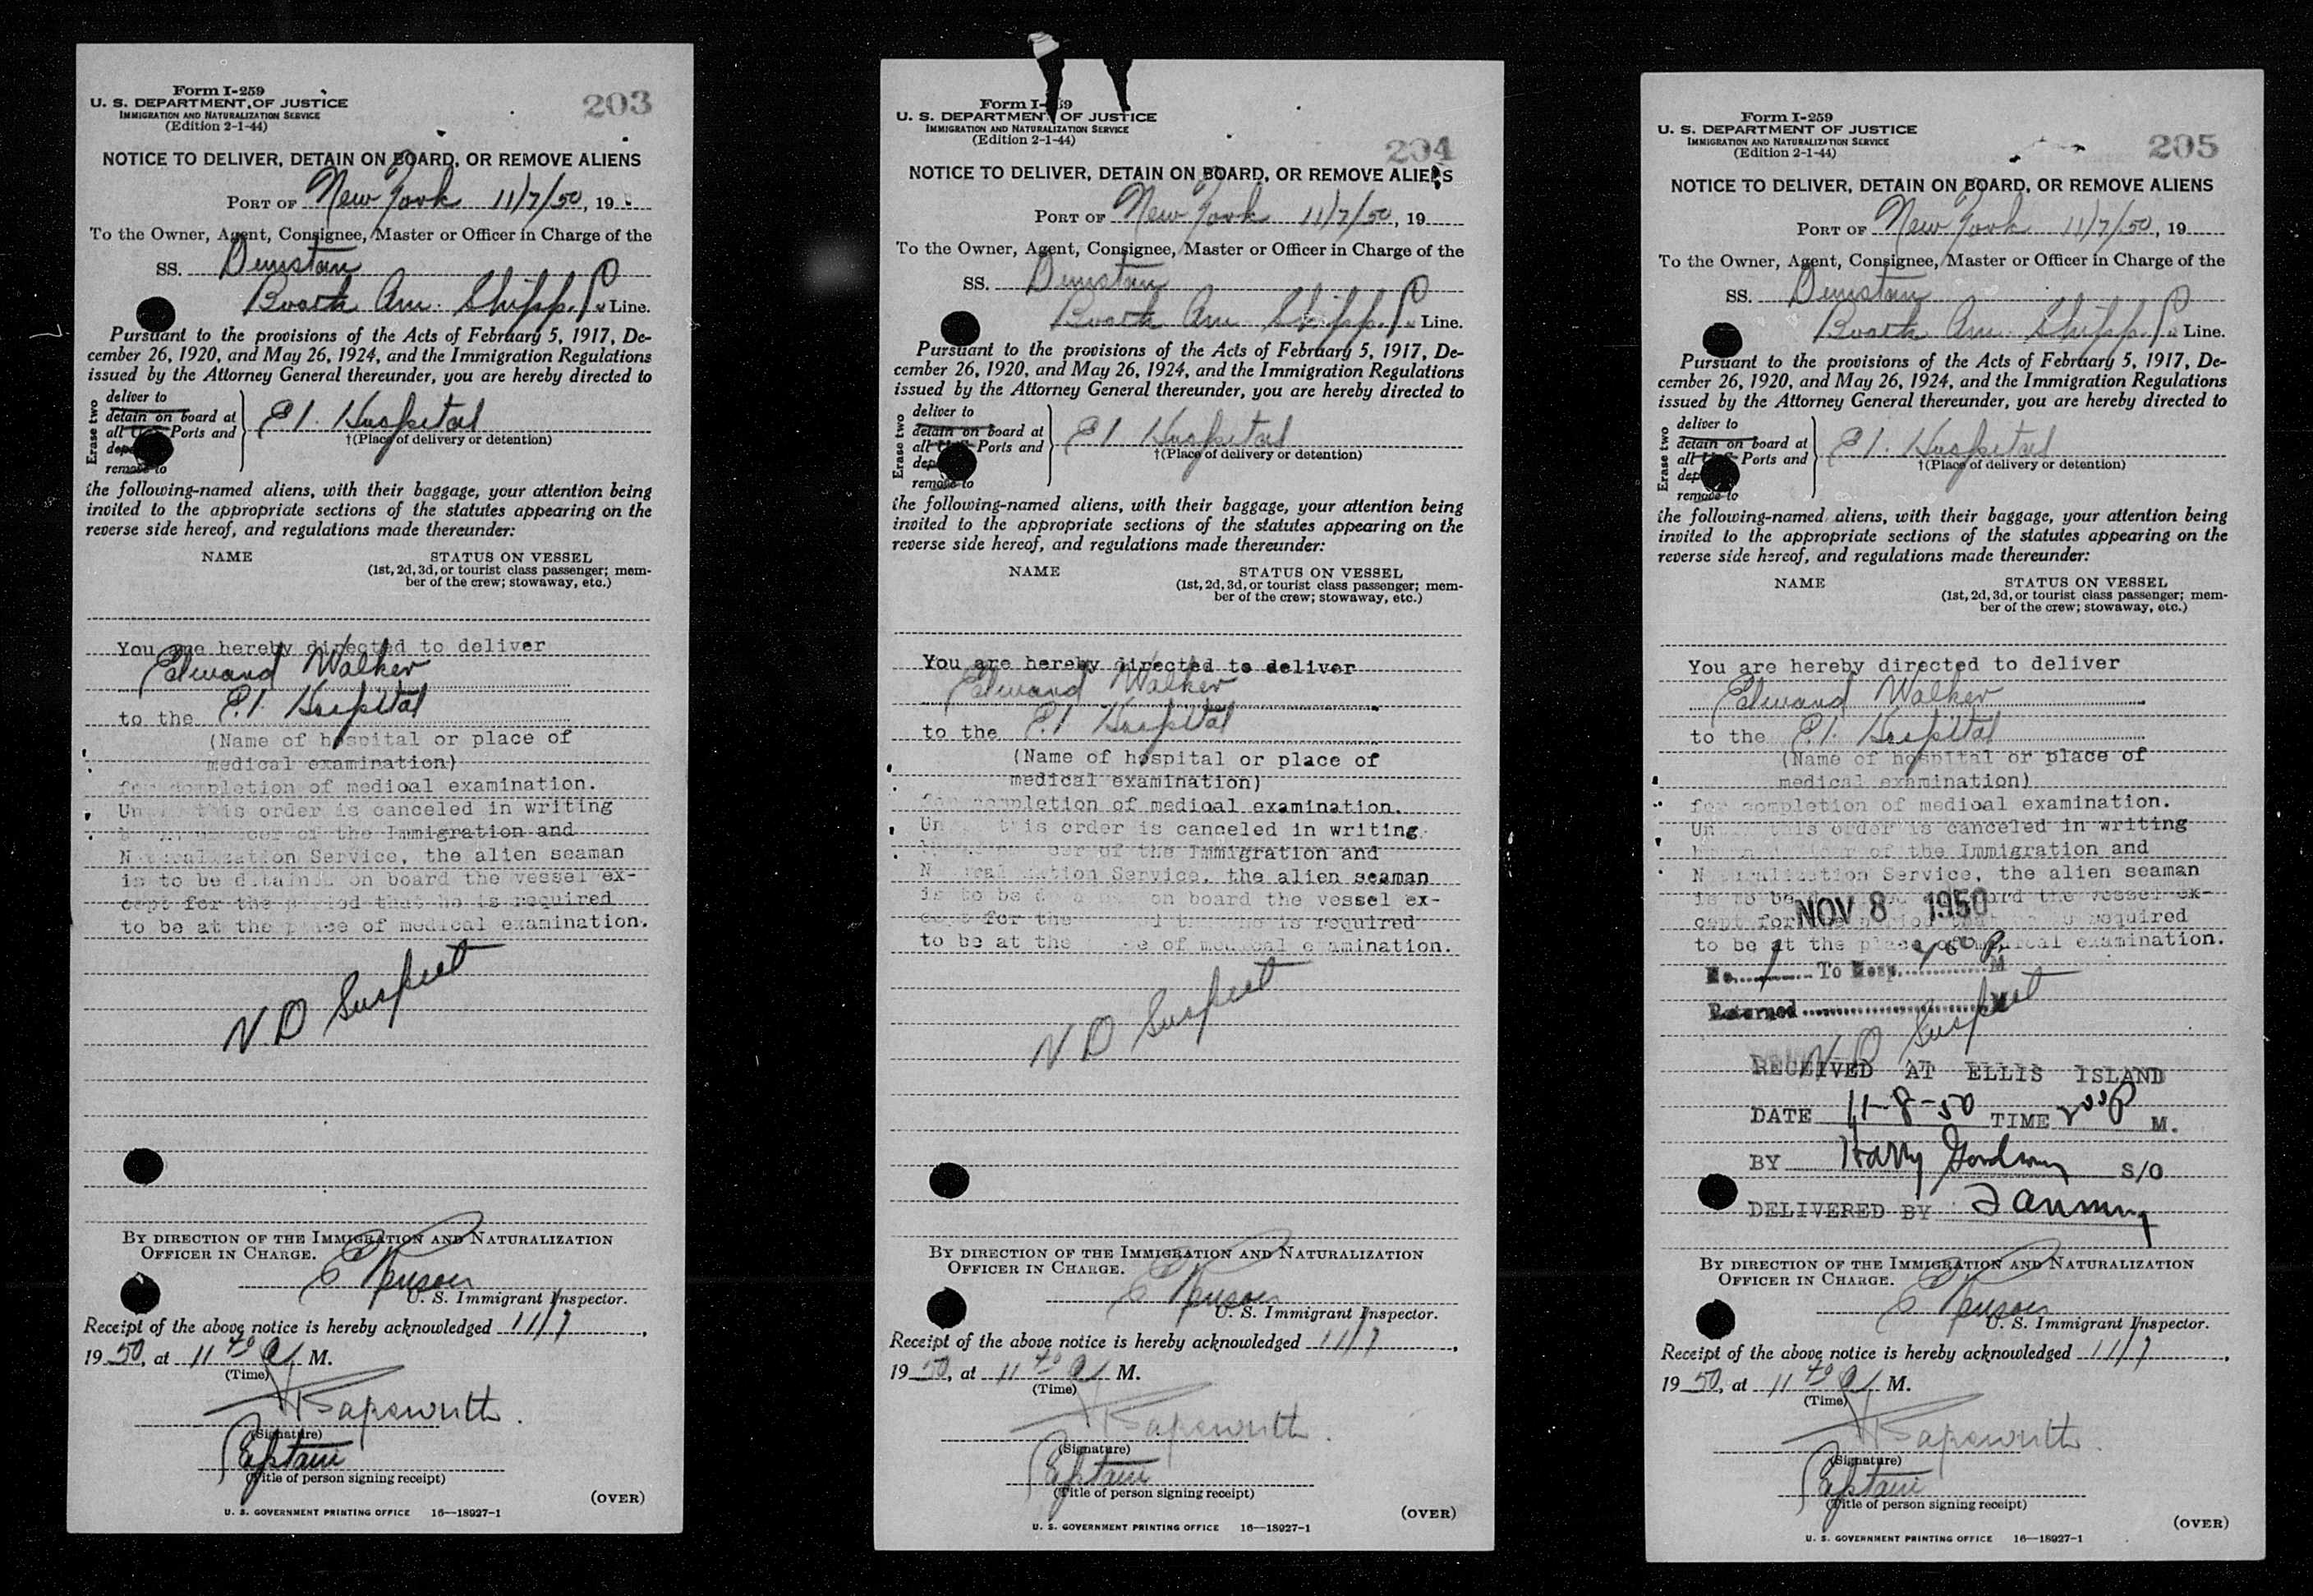 Form I-259
U. S. DEPARTMENT OF JUSTICE
IMMIGRATION AND NATURALIZATION SERVICE
(Edition 2-1-44)
203
NOTICE TO DELIVER, DETAIN ON BOARD, OR REMOVE ALIENS
PORT OF New York 11/7/50, 19
To the Owner, Agent, Consignee, Master or Officer in Charge of the
SS. Dunstan
Booth Am. Shipp. Line.
Pursuant to the provisions of the Acts of February 5, 1917, De-
cember 26, 1920, and May 26, 1924, and the Immigration Regulations
issued by the Attorney General thereunder, you are hereby directed to
Erase two
deliver to
detain on board at
all Ports and
remove to
E I. Hospital
†(Place of delivery or detention)
the following-named aliens, with their baggage, your attention being
invited to the appropriate sections of the statutes appearing on the
reverse side hereof, and regulations made thereunder:
NAME STATUS ON VESSEL
(1st, 2d, 3d, or tourist class passenger; mem-
ber of the crew; stowaway, etc.)
You are hereby directed to deliver
Edward Walker
to the E.I. Hospital
(Name of hospital or place of
medical examination)
for completion of medical examination.
this order is canceled in writing
of the Immigration and
Naturalization Service, the alien seaman
is to be detained on board the vessel ex-
cept for the period that he is required
to be at the place of medical examination.
V. D Suspect
BY DIRECTION OF THE IMMIGRATION AND NATURALIZATION
OFFICER IN CHARGE.
U. S. Immigrant Inspector.
Receipt of the above notice is hereby acknowledged 11/7,
1950, at 11 40 A M.
(Time)
Papeworth.
(Signature)
Captain
(Title of person signing receipt)
(OVER)
U. S. GOVERNMENT PRINTING OFFICE 16—18927-1
Form I-259
U. S. DEPARTMENT OF JUSTICE
IMMIGRATION AND NATURALIZATION SERVICE
(Edition 2-1-44)
204
NOTICE TO DELIVER, DETAIN ON BOARD, OR REMOVE ALIENS
PORT OF New York 11/7/50, 19
To the Owner, Agent, Consignee, Master or Officer in Charge of the
SS. Dunstan
Booth Am Shipp. Line.
Pursuant to the provisions of the Acts of February 5, 1917, De-
cember 26, 1920, and May 26, 1924, and the Immigration Regulations
issued by the Attorney General thereunder, you are hereby directed to
Erase two
deliver to
detain on board at
all Ports and
remove to
E I Hospital
†(Place of delivery or detention)
the following-named aliens, with their baggage, your attention being
invited to the appropriate sections of the statutes appearing on the
reverse side hereof, and regulations made thereunder:
NAME STATUS ON VESSEL
(1st, 2d, 3d, or tourist class passenger; mem-
ber of the crew; stowaway, etc.)
You are hereby directed to deliver
Edward Walker
to the E.I Hospital
(Name of hospital or place of
medical examination)
for completion of medical examination.
this order is canceled in writing
of the Immigration and
Service, the alien seaman
is to be on board the vessel ex-
cept for the he is required
to be at the of medical examination.
V D Suspect
BY DIRECTION OF THE IMMIGRATION AND NATURALIZATION
OFFICER IN CHARGE.
U. S. Immigrant Inspector.
Receipt of the above notice is hereby acknowledged 11/7,
1950, at 11 40 A M.
(Time)
Papeworth.
(Signature)
Captain
(Title of person signing receipt)
(OVER)
U. S. GOVERNMENT PRINTING OFFICE 16—18927-1
Form I-259
U. S. DEPARTMENT OF JUSTICE
IMMIGRATION AND NATURALIZATION SERVICE
(Edition 2-1-44)
205
NOTICE TO DELIVER, DETAIN ON BOARD, OR REMOVE ALIENS
PORT OF New York 11/7/50, 19
To the Owner, Agent, Consignee, Master or Officer in Charge of the
SS. Dunstan
Booth Am. Shipp. Line.
Pursuant to the provisions of the Acts of February 5, 1917, De-
cember 26, 1920, and May 26, 1924, and the Immigration Regulations
issued by the Attorney General thereunder, you are hereby directed to
Erase two
deliver to
detain on board at
all Ports and
remove to
E I. Hospital
†(Place of delivery or detention)
the following-named aliens, with their baggage, your attention being
invited to the appropriate sections of the statutes appearing on the
reverse side hereof, and regulations made thereunder:
NAME STATUS ON VESSEL
(1st, 2d, 3d, or tourist class passenger; mem-
ber of the crew; stowaway, etc.)
You are hereby directed to deliver
Edward Walker
to the E.I. Hospital
(Name of hospital or place of
medical examination)
for completion of medical examination.
this order is canceled in writing
of the Immigration and
Naturalization Service, the alien seaman
is to be the vessel ex-
cept for required
NOV 8 1950
to be at the place of medical examination.
No. 1 To Hosp. M
Returned M
V D Suspect
RECEIVED AT ELLIS ISLAND
DATE 11-8-50 TIME 2 00 P M.
BY Harry S/O
DELIVERED BY
BY DIRECTION OF THE IMMIGRATION AND NATURALIZATION
OFFICER IN CHARGE.
U. S. Immigrant Inspector.
Receipt of the above notice is hereby acknowledged 11/7,
1950, at 11 40 A M.
(Time)
Papeworth.
(Signature)
Captain
(Title of person signing receipt)
(OVER)
U. S. GOVERNMENT PRINTING OFFICE 16—18927-1